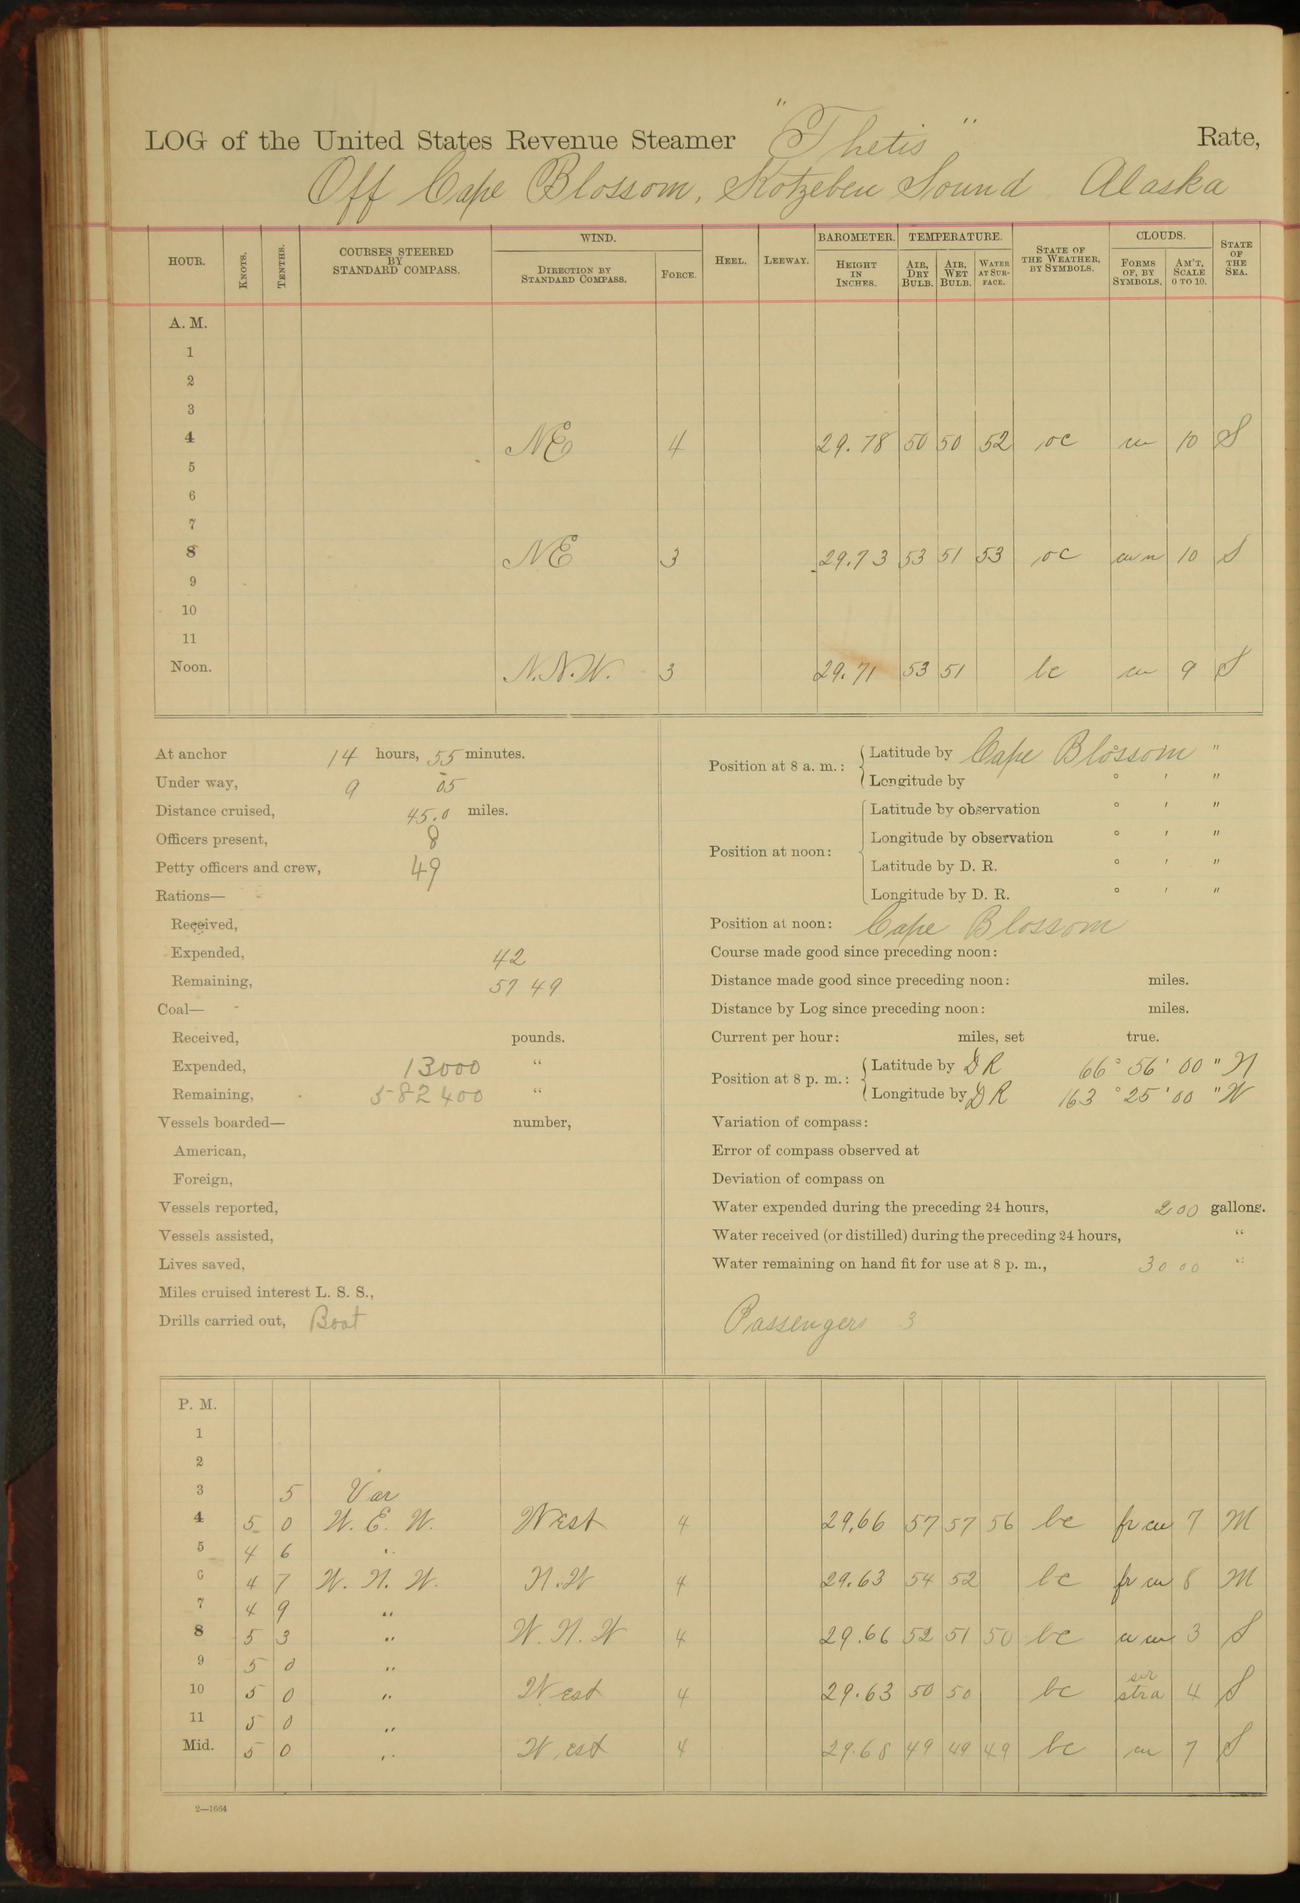 LOG of the United States Revenue Steamer "Thetis", Rate,
Off Cape Blossom, Kotzebeu Sound Alaska
HOUR. KNOTS. TENTHS. COURSES STEERED BY STANDARD COMPASS. WIND. DIRECTION BY STANDARD COMPASS. FORCE. HEEL. LEEWAY. BAROMETER. HEIGHT IN INCHES. TEMPERATURE. AIR, DRY BULB. AIR, WET BULB. WATER AT SURFACE. STATE OF THE WEATHER, BY SYMBOLS. CLOUDS. FORMS OF, BY SYMBOLS. AM'T, SCALE 0 TO 10. STATE OF THE SEA.
A. M.
1
2
3
4 NE 4 29.78 50 50 52 oc cu 10 S
5
6
7
8 NE 3 29.73 53 51 53 oc cu n 10 S
9
10
11
Noon. N.N.W. 3 29.71 53 51 bc cu 9 S
At anchor 14 hours, 55 minutes.
Under way, 9 05
Distance cruised, 45.0 miles.
Officers present, 8
Petty officers and crew, 49
Rations—
Received,
Expended, 42
Remaining, 5749
Coal—
Received, pounds.
Expended, 13000 "
Remaining, 582400 "
Vessels boarded— number,
American,
Foreign,
Vessels reported,
Vessels assisted,
Lives saved,
Miles cruised interest L. S. S.,
Drills carried out, Boat
Position at 8 a. m.: Latitude by Cape Blossom ° "
Longitude by ° ' "
Position at noon: Latitude by observation ° ' "
Longitude by observation ° ' "
Latitude by D. R. ° ' "
Longitude by D. R. ° ' "
Position at noon: Cape Blossom
Course made good since preceding noon:
Distance made good since preceding noon: miles.
Distance by Log since preceding noon: miles.
Current per hour: miles, set true.
Position at 8 p. m.: Latitude by DR 66° 56' 00" N
Longitude by DR 163° 25' 00" W
Variation of compass:
Error of compass observed at
Deviation of compass on
Water expended during the preceding 24 hours, 200 gallons.
Water received (or distilled) during the preceding 24 hours, "
Water remaining on hand fit for use at 8 p. m., 3000 "
Passengers 3
P. M.
1
2
3 5 Var
4 5 0 W. E. W. West 4 29.66 57 57 56 bc fr cu 7 M
5 4 6 "
6 4 7 W. N. W. N.W 4 29.63 54 52 bc fr cu 8 M
7 4 9 "
8 5 3 " W. N. W 4 29.66 52 51 50 bc 3 S
9 5 0 "
10 5 0 " West 4 29.63 50 50 bc stra 4 S
11 5 0 "
Mid. 5 0 " West 4 29.68 49 49 49 bc cu 7 S
2—1664